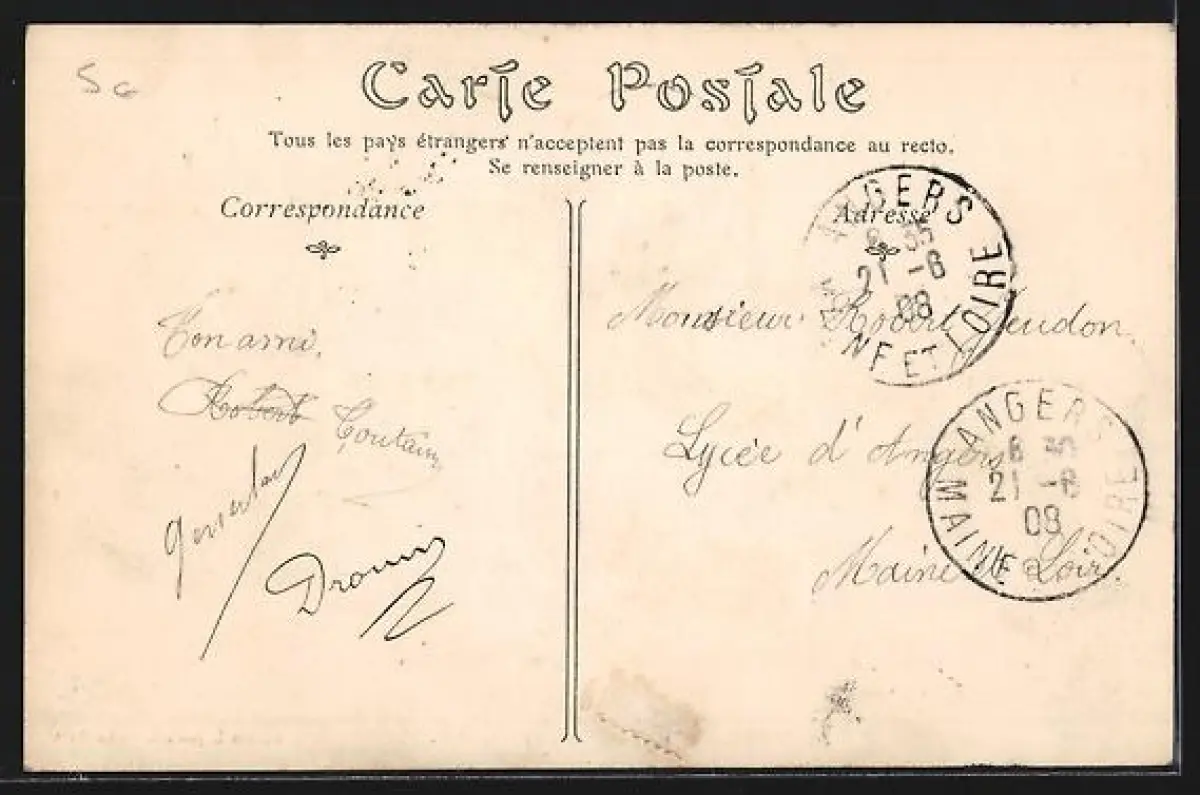 5c
Carte Postale
Tous les pays étrangers n'acceptent pas la correspondance au recto.
Se renseigner à la poste.
Correspondance
Adresse
ANGERS
8 30
21 - 6
08
MAINE ET LOIRE
Ton ami,
Robert Toutain
Drouin
Monsieur Robert
Lycée d'Angers
Maine et Loire
ANGERS
8 30
21 - 6
08
MAINE ET LOIRE